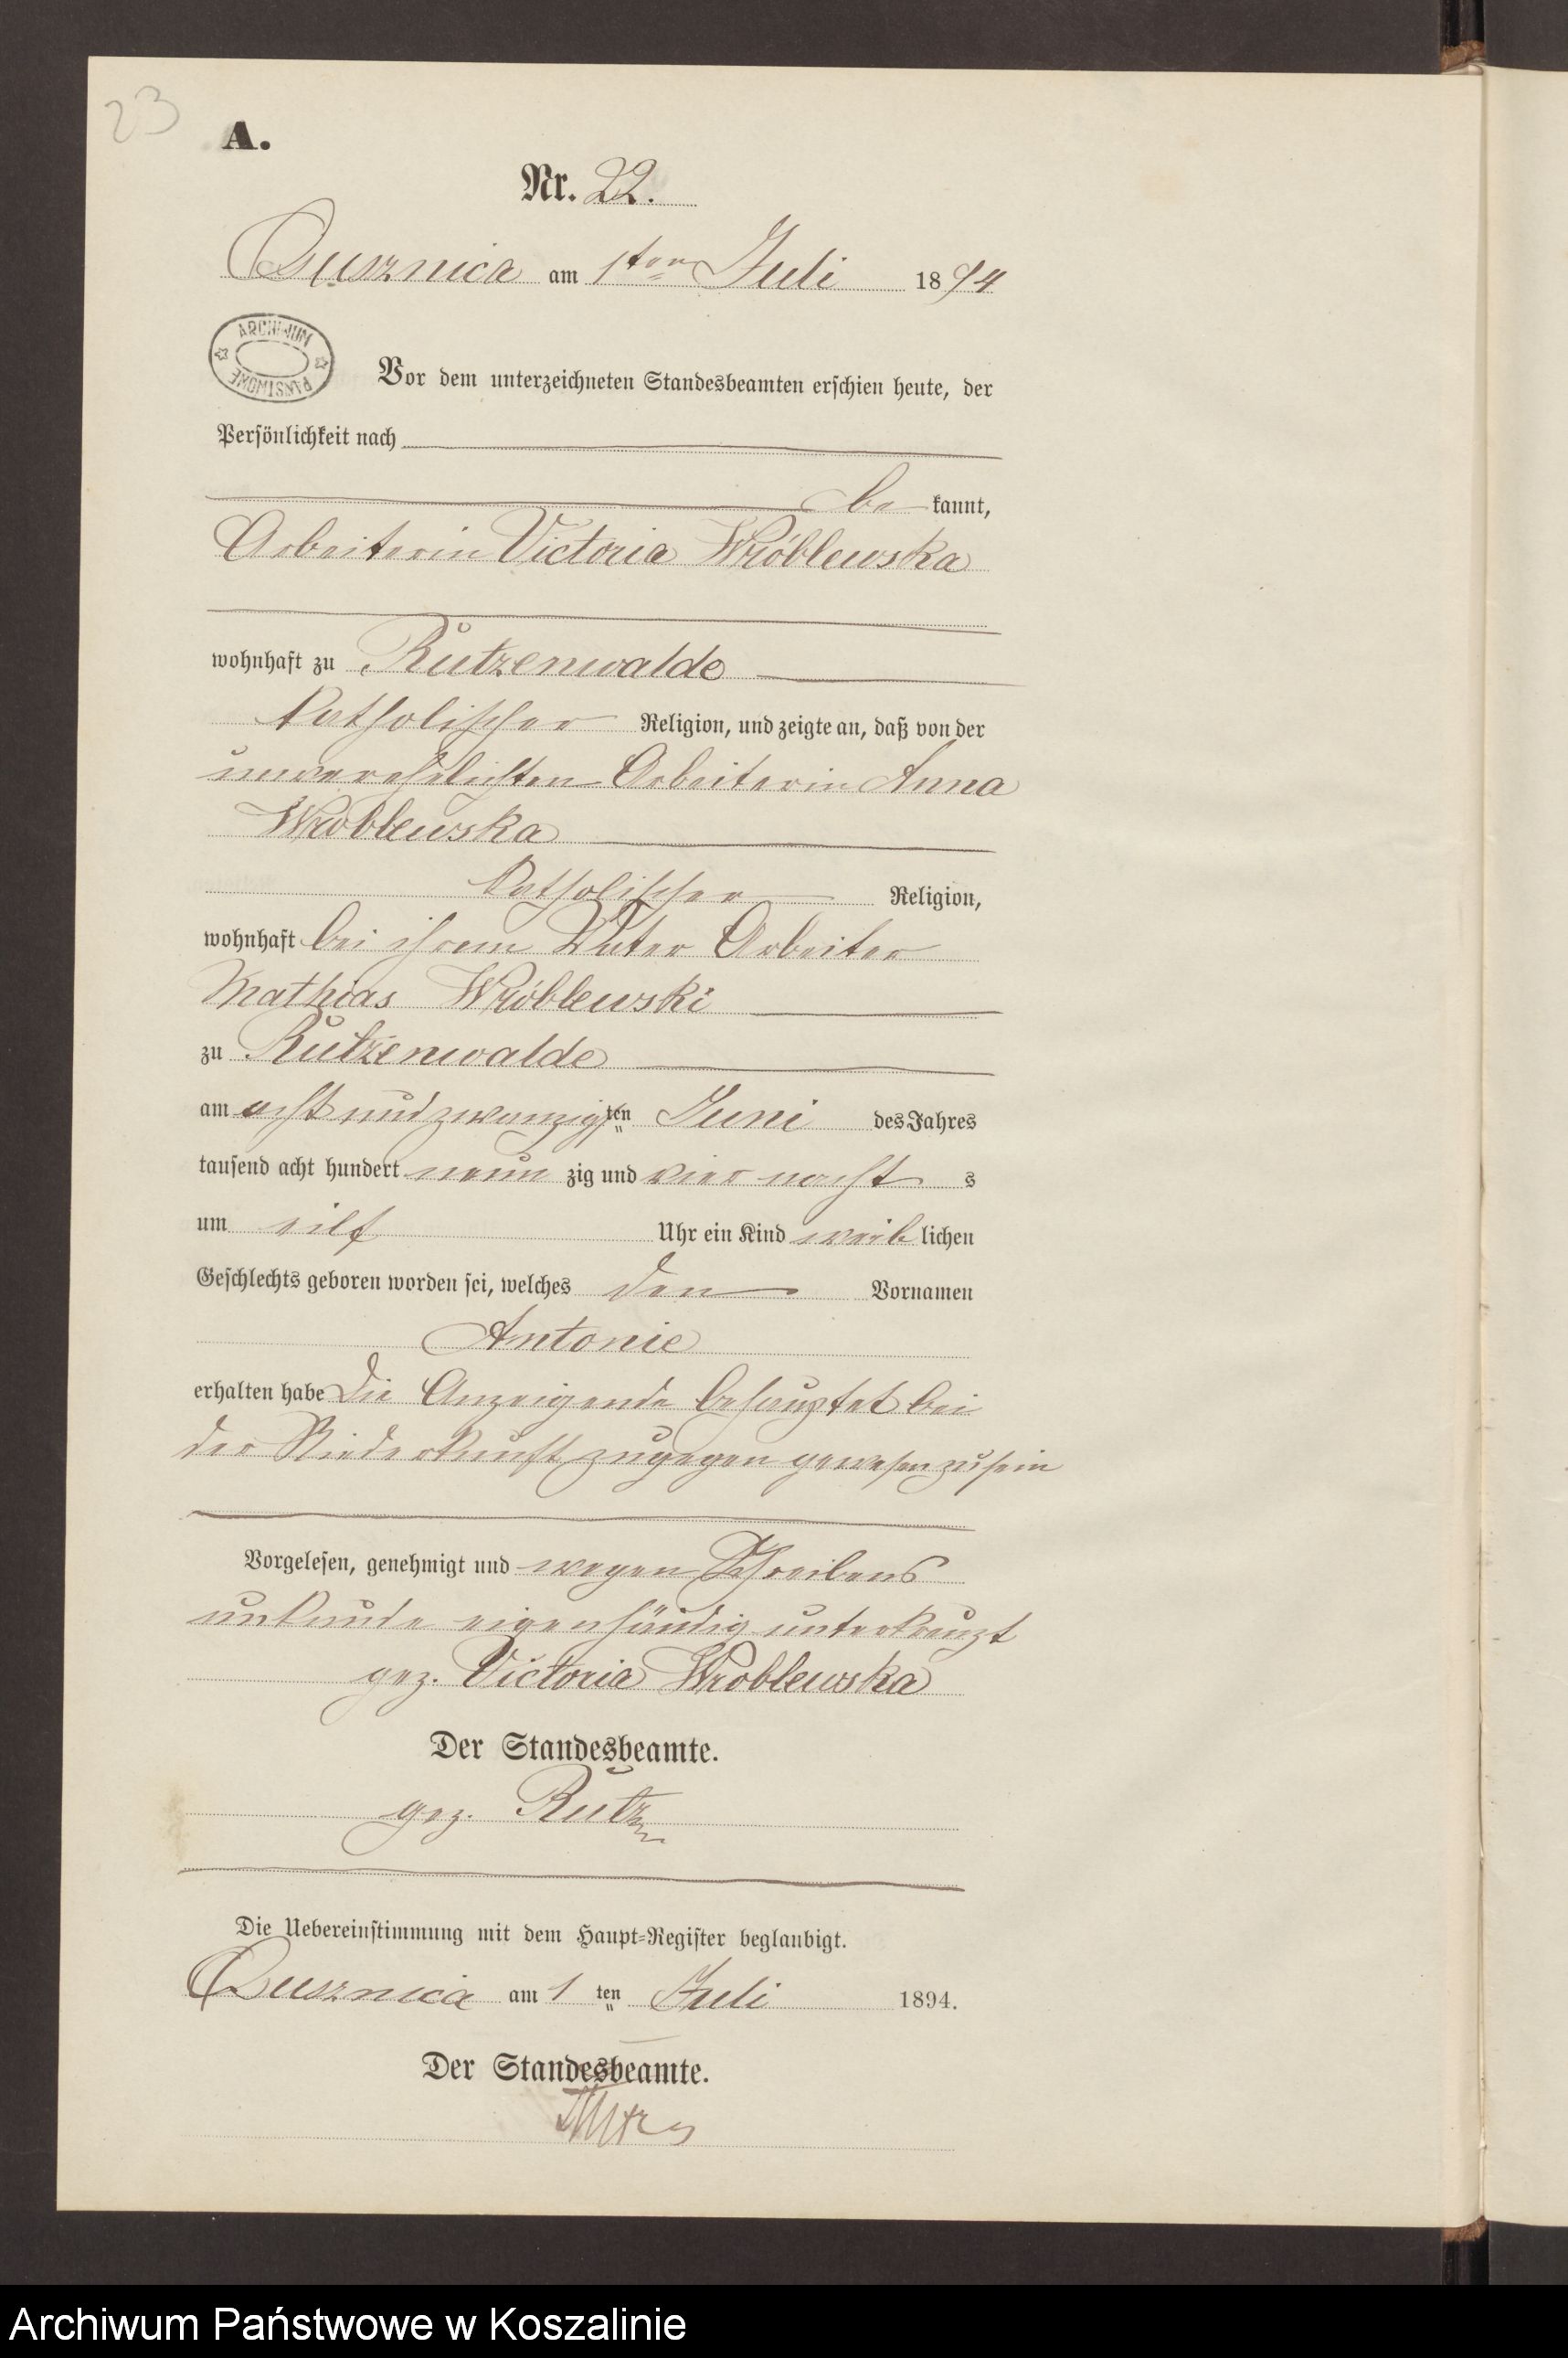 23
A.
Nr. 22.
Dusznica am 1ten Juli 1894
ARCHIWUM PAŃSTWOWE
Vor dem unterzeichneten Standesbeamten erschien heute, der
Persönlichkeit nach
be kannt,
Arbeiterin Victoria Wróblewska
wohnhaft zu Rutzenwalde
katholischer Religion, und zeigte an, daß von der
unverehelichten Arbeiterin Anna
Wróblewska
katholischer Religion,
wohnhaft bei ihrem Vater Arbeiter
Mathias Wróblewski
zu Rutzenwalde
am acht und zwanzigsten Juni des Jahres
tausend acht hundert neun zig und vier nacht s
um eilf Uhr ein Kind weib lichen
Geschlechts geboren worden sei, welches den Vornamen
Antonie
erhalten habe Die Anzeigende behauptet bei
der Niederkunft zugegen gewesen zu sein
Vorgelesen, genehmigt und wegen Schreibens
unkunde eigenhändig unterkreuzt
gez. Victoria Wroblewska
Der Standesbeamte.
gez. Rutz
Die Uebereinstimmung mit dem Haupt-Register beglaubigt.
Dusznica am 1 ten Juli 1894.
Der Standesbeamte.
Rutz
Archiwum Państwowe w Koszalinie